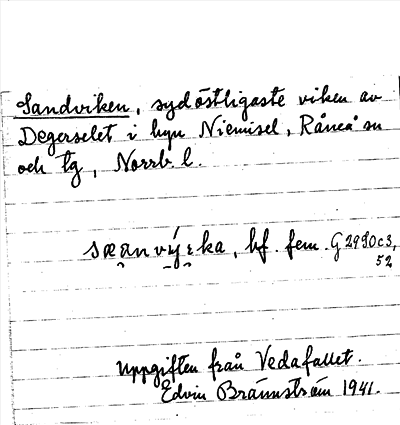 Sandviken, sydöstligaste viken av
Degerselet i byn Niemisel, Råneå sn
och tg, Norrb. l.
sæ̣anvýɛka, bf. fem. G 2980c3,
52
Uppgiften från Vedafallet.
Edvin Brännström 1941.